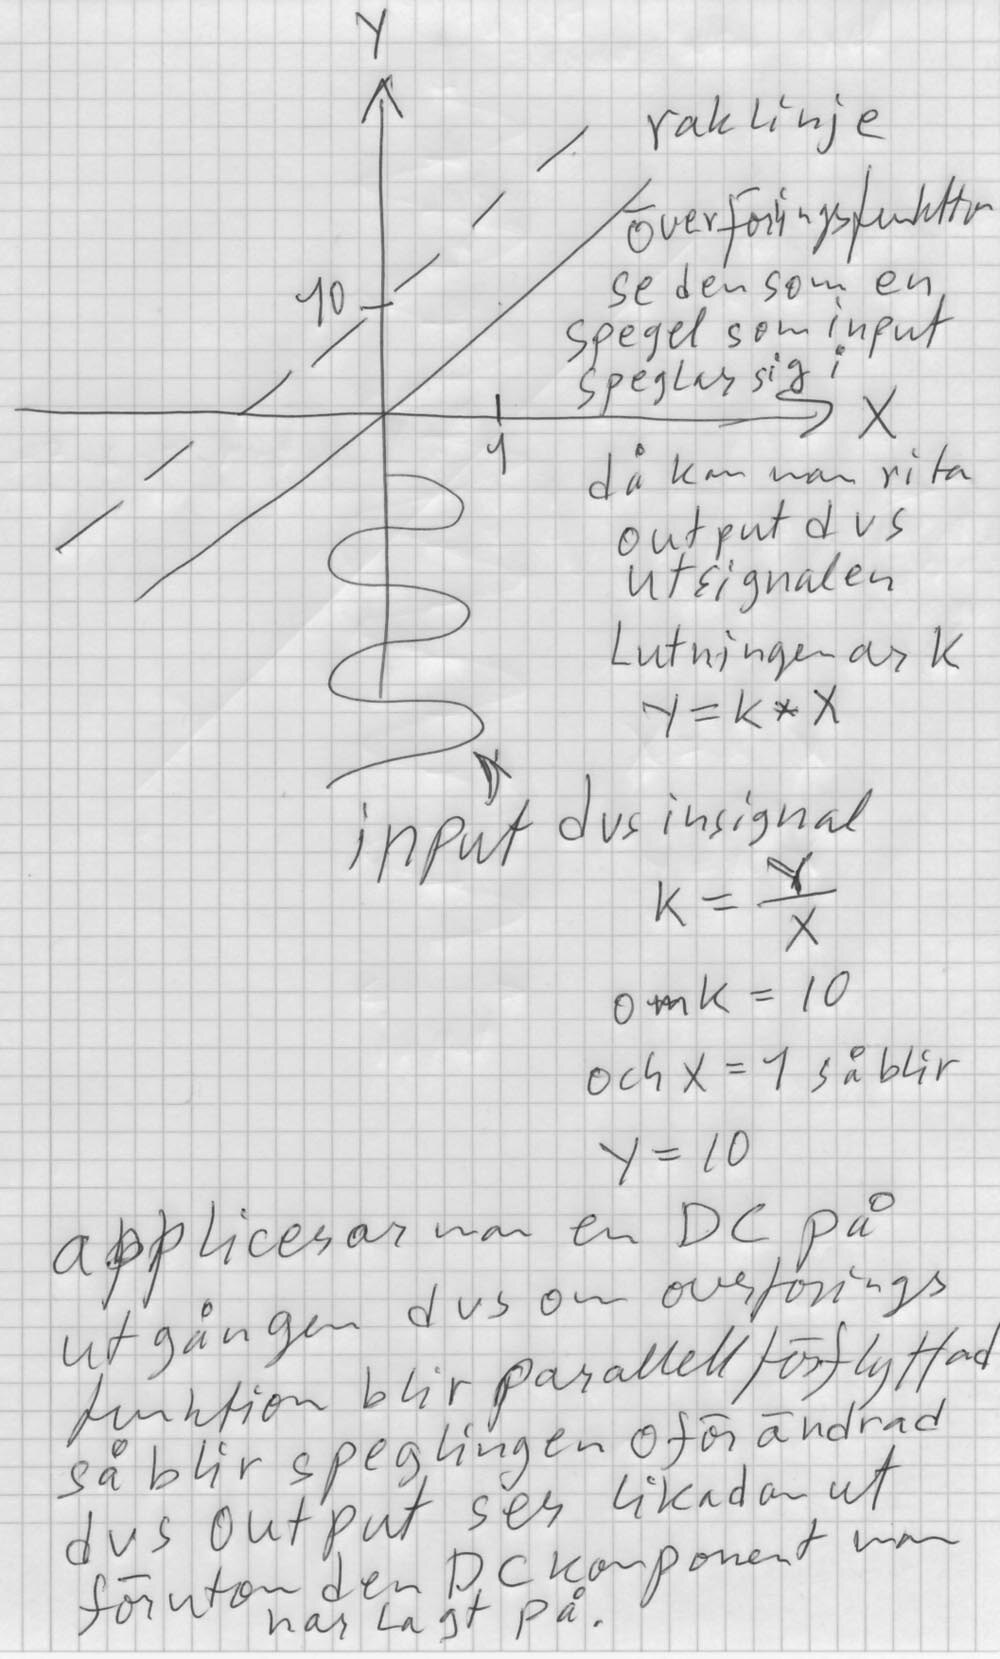 Y
rak linje
överföringsfunktion
se den som en
spegel som input
speglar sig i
10
X
1
då kan man rita
output dvs
utsignalen
Lutningen är K
Y = K * X
input dvs insignal
K = Y / X
om K = 10
och X = 1 så blir
Y = 10
appliceras man en DC på
utgången dvs om överförings
funktion blir parallell förflyttad
så blir speglingen oförändrad
dvs output ser likadan ut
förutom den DC komponent man
har lagt på.